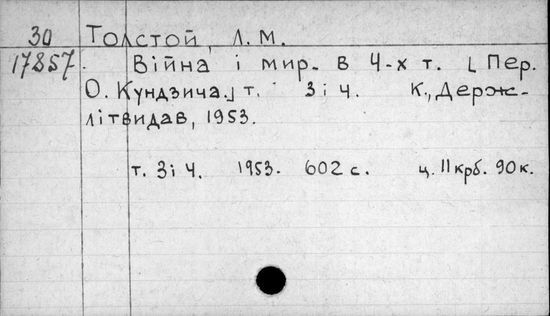 30 Толстой, Л. М.
17857. Війна і мир. в 4-х т. [Пер.
О. Кундзича.] т. 3 і 4. К., Держ-
літвидав, 1953.
т. 3 і 4. 1953. 602 с. ц. 11 крб. 90 к.